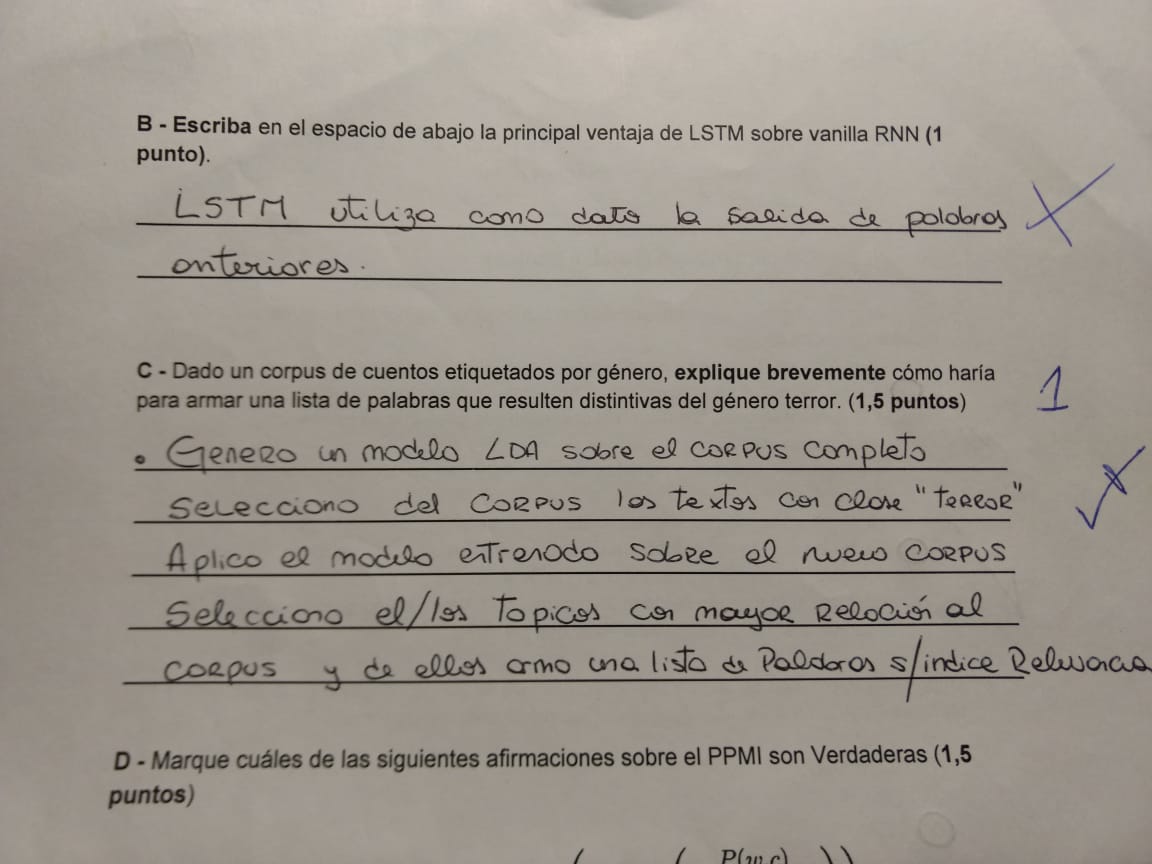 B - Escriba en el espacio de abajo la principal ventaja de LSTM sobre vanilla RNN (1
punto).
LSTM utiliza como dato la salida de palabras
anteriores.
C - Dado un corpus de cuentos etiquetados por género, explique brevemente cómo haría
para armar una lista de palabras que resulten distintivas del género terror. (1,5 puntos)
1
• Genero un modelo LDA sobre el corpus completo
Selecciono del corpus los textos con clase "terror"
Aplico el modelo entrenado sobre el nuevo corpus
Selecciono el/los topicos con mayor relación al
corpus y de ellos armo una lista de Palabras s/indice Relevancia
D - Marque cuáles de las siguientes afirmaciones sobre el PPMI son Verdaderas (1,5
puntos)
P(w,c)